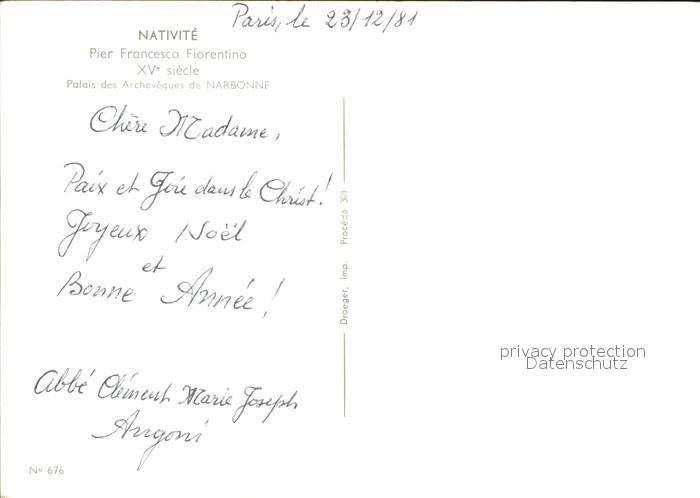 Paris, le 23/12/81
NATIVITÉ
Pier Francesco Fiorentino
XVe siècle
Palais des Archevêques de NARBONNE
Chère Madame,
Paix et Joie dans le Christ!
Joyeux Noël
et
Bonne Année!
Abbé Clément Marie Joseph
Angoni
No 676
Draeger, Imp. Procédé 301
privacy protection
Datenschutz